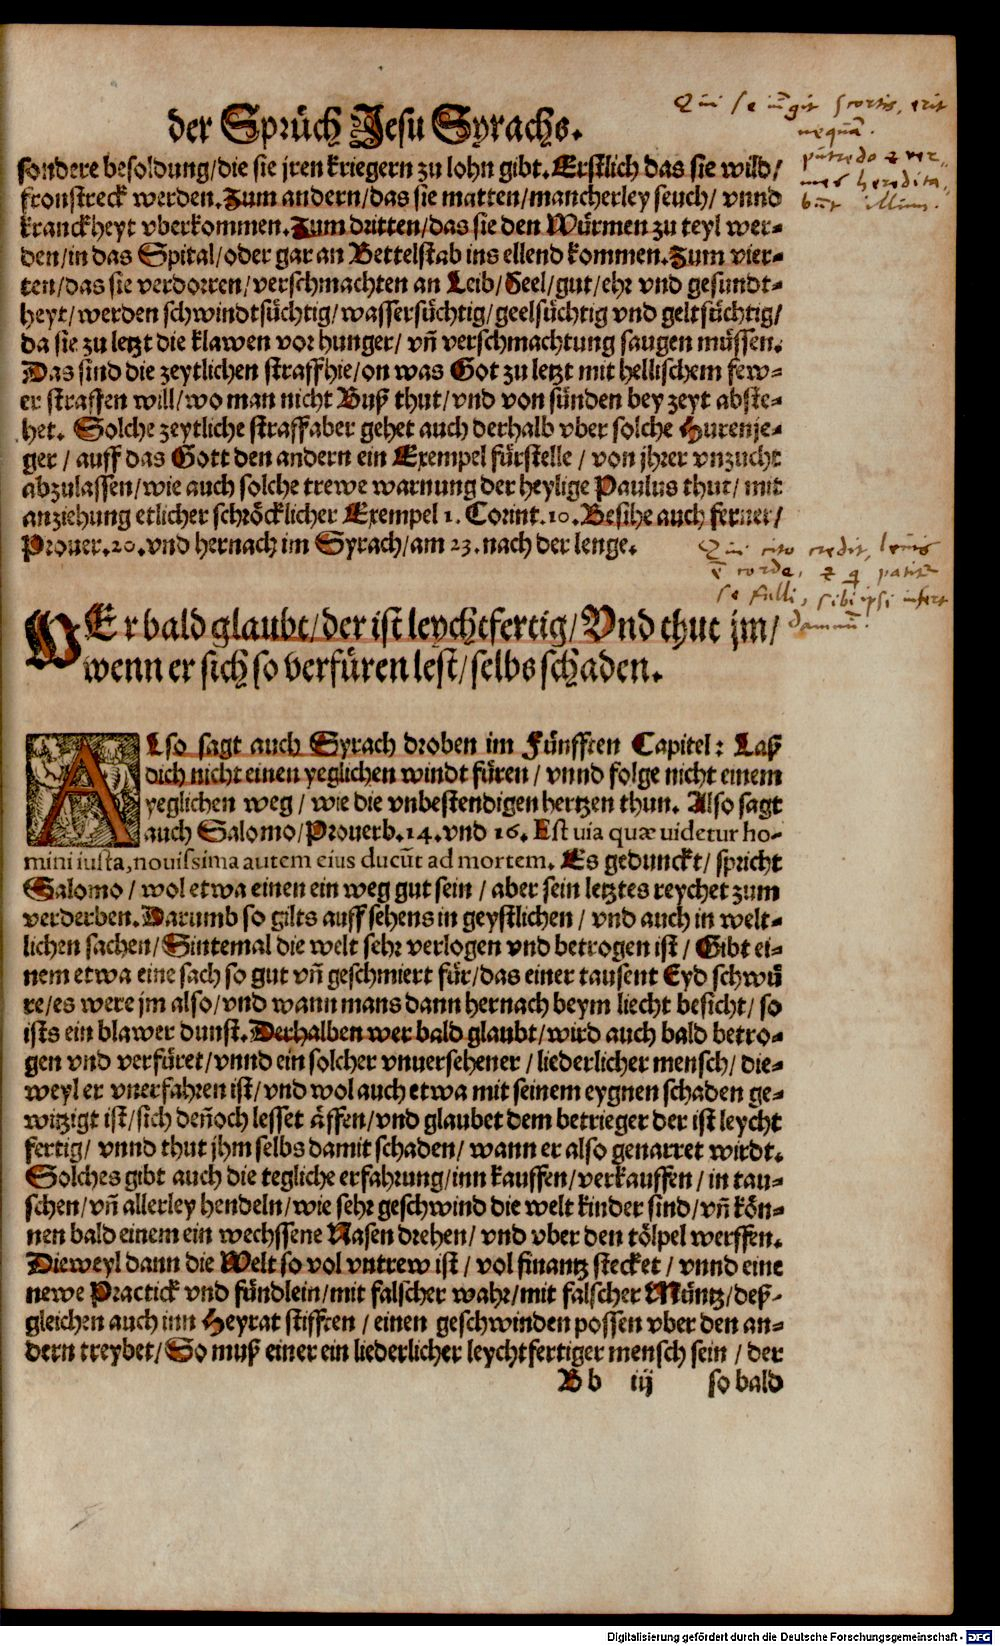 der Sprüch Jesu Syrachs.
Qui se iu̅git scortis, erit
nequa̅.
putredo & ver-
mes heredita-
bu̅t illum.
sondere besoldung/die sie jren kriegern zu lohn gibt. Erstlich das sie wild/
fronstreck werden. Zum andern/das sie matten/mancherley seuch/ vnnd
kranckheyt vberkommen. Zum dritten/das sie den Würmen zu teyl wer-
den/in das Spital/oder gar an Bettelstab ins ellend kommen. Zum vier-
ten/das sie verdorren/verschmachten an Leib/Seel/gut/ehr vnd gesundt-
heyt/werden schwindtsüchtig/wassersüchtig/geelsüchtig vnd geltsüchtig/
da sie zu letzt die klawen vor hunger/ vn̅ verschmachtung saugen müssen.
Das sind die zeytlichen straff hie/on was Got zu letzt mit hellischem few-
er straffen will/wo man nicht Buß thut/vnd von sünden bey zeyt abste-
het. Solche zeytliche straff aber gehet auch derhalb vber solche Hurenje-
ger / auff das Gott den andern ein Exempel fürstelle / von jhrer vnzucht
abzulassen/wie auch solche trewe warnung der heylige Paulus thut/ mit
anziehung etlicher schröcklicher Exempel 1. Corint. 10. Besihe auch ferner/
Prouer. 20. vnd hernach im Syrach/am 23. nach der lenge.
Qui cito credit, leuis
e̅ corde, & q patit
se falli, sibi ipsi infert
damnu̅.
WEr bald glaubt/der ist leychtfertig/Vnd thut jm/
wenn er sich so verfüren lest/selbs schaden.
ALso sagt auch Syrach droben im Fünfften Capitel: Laß
dich nicht einen yeglichen windt füren / vnnd folge nicht einem
yeglichen weg / wie die vnbestendigen hertzen thun. Also sagt
auch Salomo/Prouerb. 14. vnd 16. Est uia quæ uidetur ho-
mini iusta, nouissima autem eius ducu̅t ad mortem. Es gedunckt/ spricht
Salomo / wol etwa einen ein weg gut sein / aber sein letztes reychet zum
verderben. Darumb so gilts auff sehens in geystlichen / vnd auch in welt-
lichen sachen/ Sintemal die welt sehr verlogen vnd betrogen ist/ Gibt ei-
nem etwa eine sach so gut vn̅ geschmiert für/das einer tausent Eyd schwü
re/es were jm also/vnd wann mans dann hernach beym liecht besicht/ so
ists ein blawer dunst. Derhalben wer bald glaubt/wird auch bald betro-
gen vnd verfüret/vnnd ein solcher vnuersehener / liederlicher mensch/ die-
weyl er vnerfahren ist/vnd wol auch etwa mit seinem eygnen schaden ge-
witzigt ist/sich den̅och lesset äffen/vnd glaubet dem betrieger der ist leycht
fertig/ vnnd thut jhm selbs damit schaden/ wann er also genarret wirdt.
Solches gibt auch die tegliche erfahrung/inn kauffen/verkauffen/ in tau-
schen/vn̅ allerley hendeln/wie sehr geschwind die welt kinder sind/vn̅ kön-
nen bald einem ein wechssene Nasen drehen/ vnd vber den tölpel werffen.
Dieweyl dann die Welt so vol vntrew ist / vol finantz stecket / vnnd eine
newe Practick vnd fündlein/mit falscher wahr/mit falscher Müntz/deß-
gleichen auch inn Heyrat stifften / einen geschwinden possen vber den an-
dern treybet/ So muß einer ein liederlicher leychtfertiger mensch sein / der
Bb iij so bald
Digitalisierung gefördert durch die Deutsche Forschungsgemeinschaft - DFG